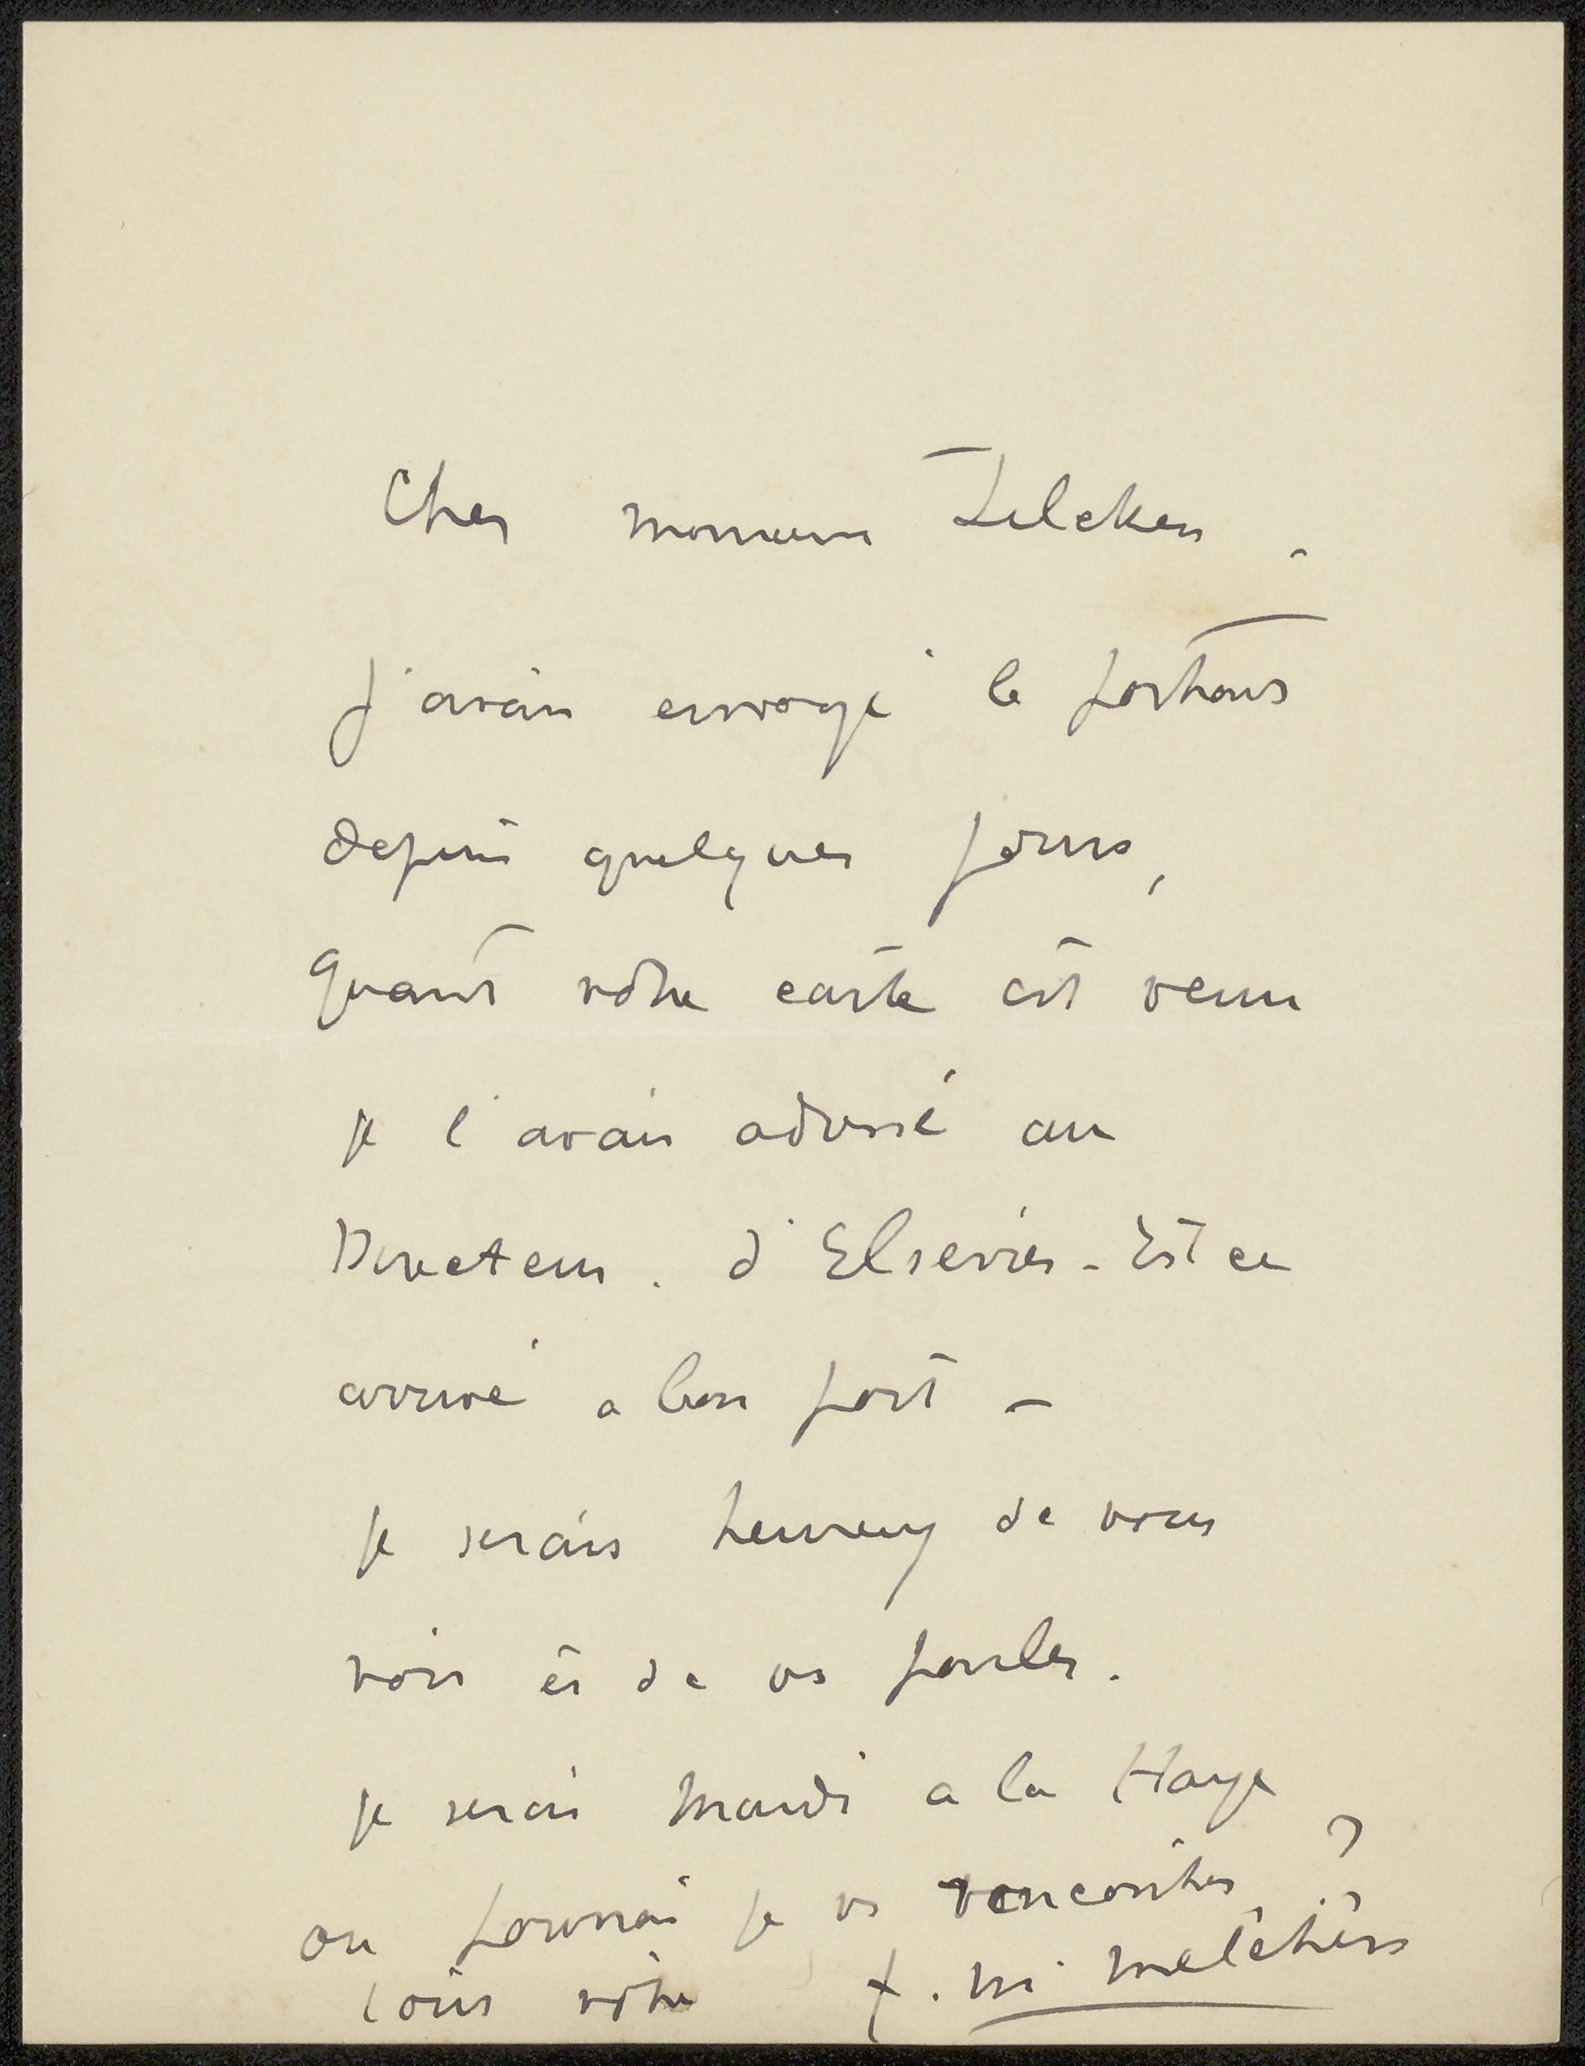 Cher monsieur Zilcken.
j'avais envoyé le portrait
depuis quelques jours,
quant votre carte est venu
je l'avais adressé au
Directeur. d'Elsevier - Est ce
arrivé a bon port -
je serais heureux de vous
voir et de vs parler.
je serai mardi a la Haye
ou pourrai je vs rencontrer?
tout votre F. M. Melchers